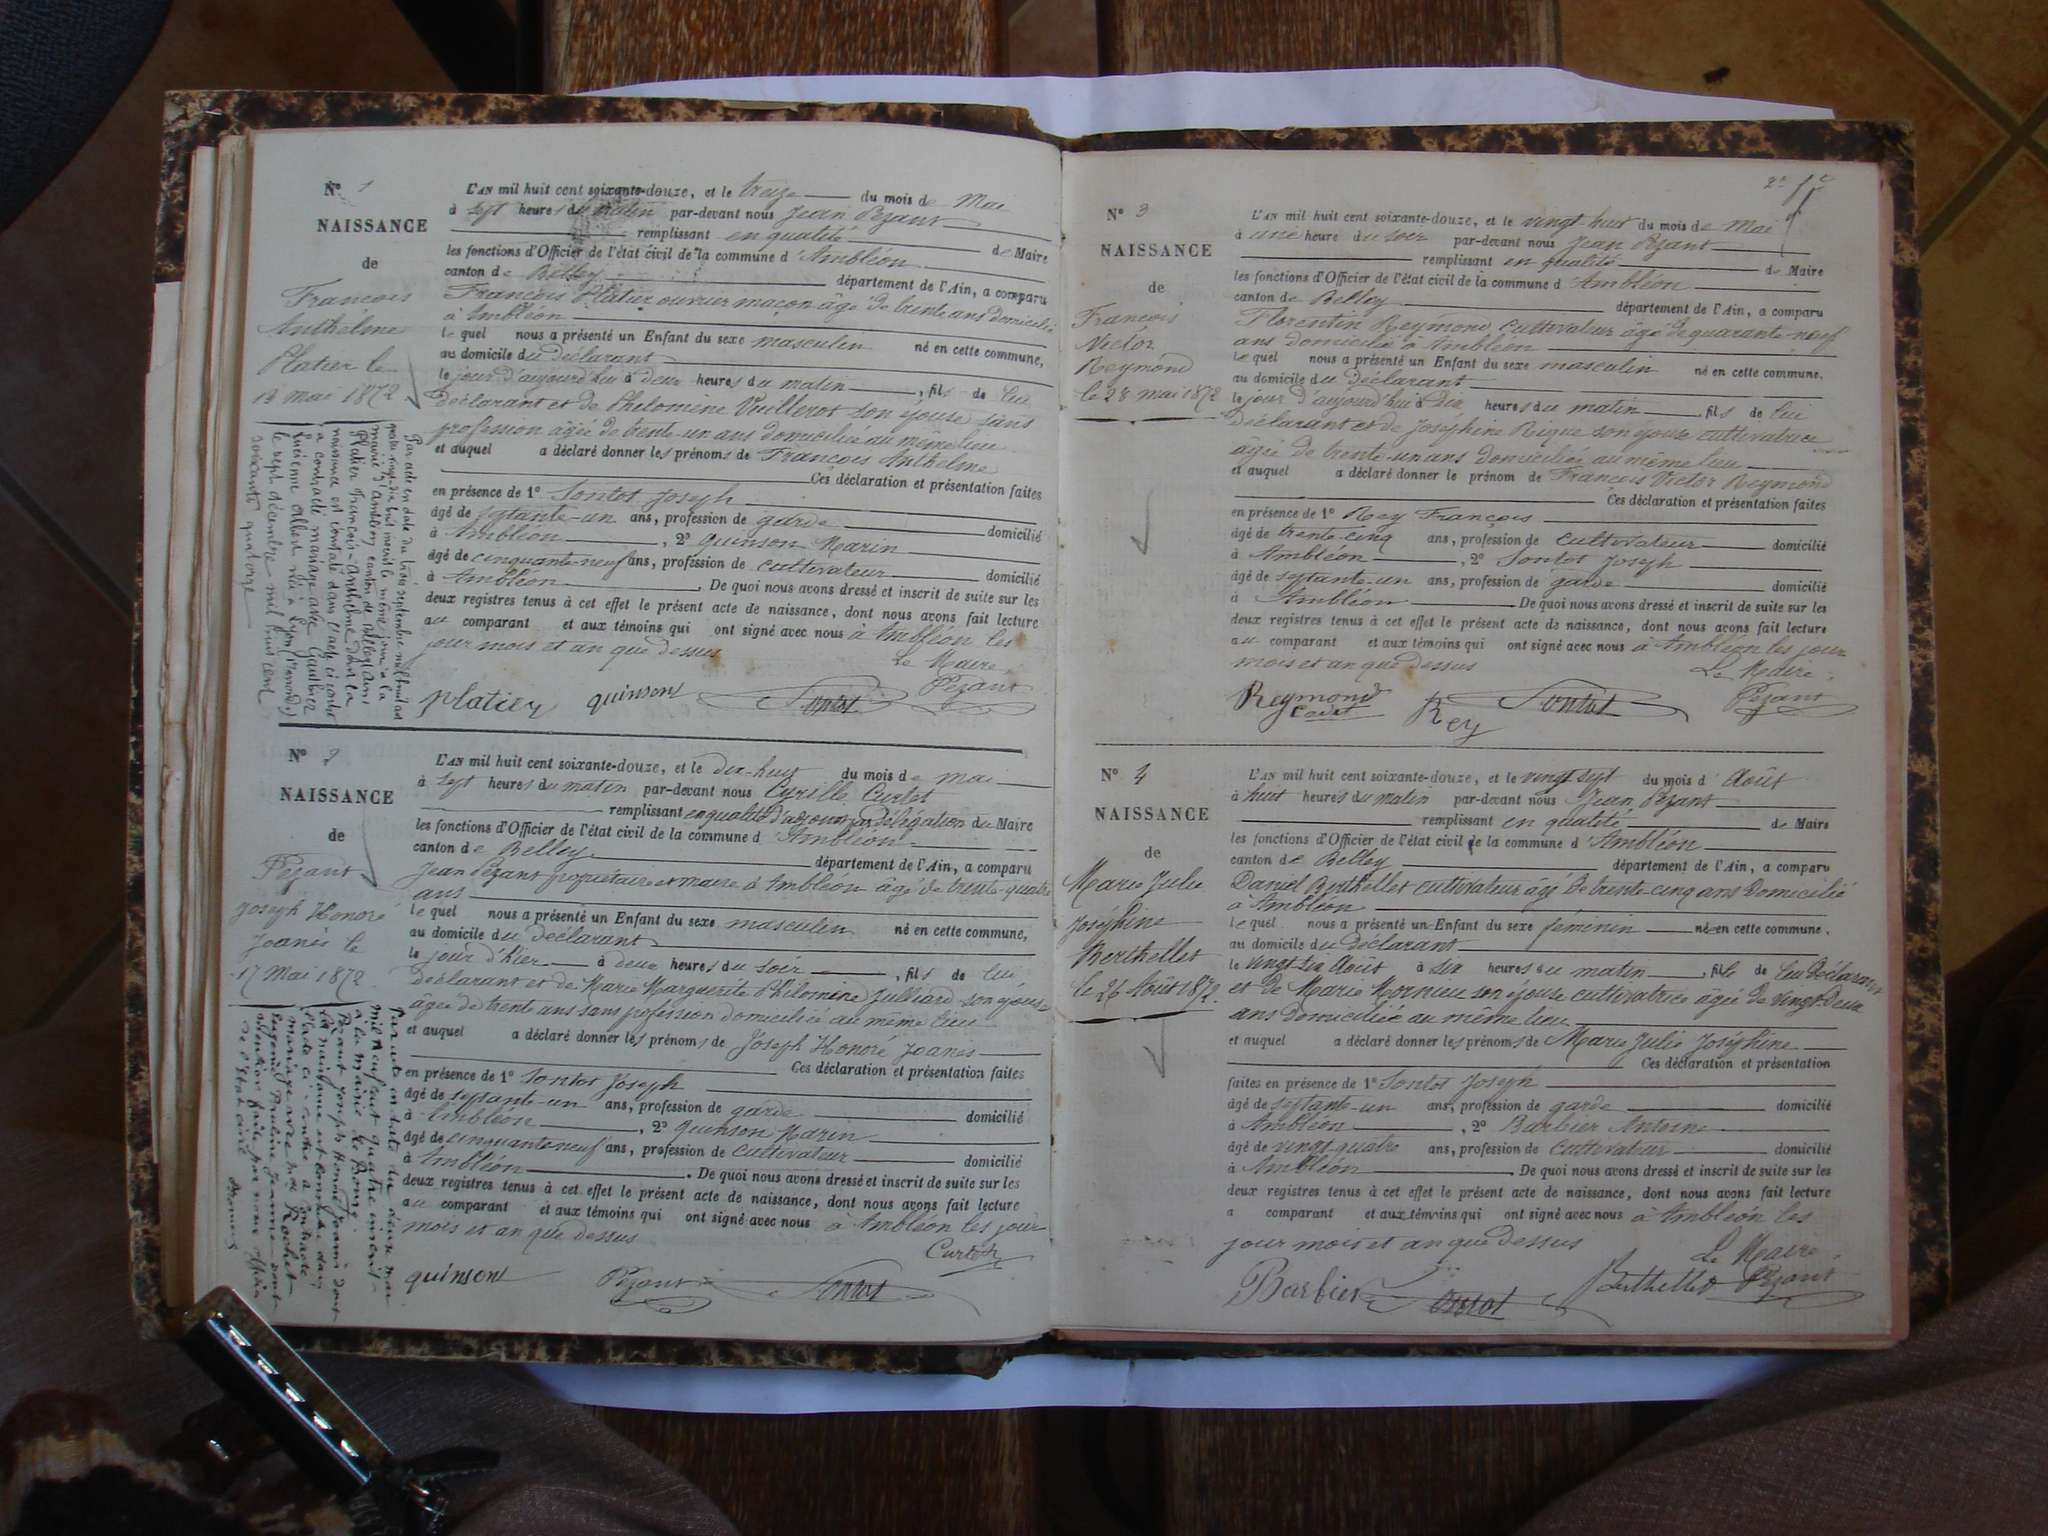 N° 1
NAISSANCE
de
François
Anthelme
Platier le
13 mai 1872
L'AN mil huit cent soixante-douze, et le treize du mois de Mai
à sept heures du matin par-devant nous Jean Pezant
remplissant en qualité de Maire
les fonctions d'Officier de l'état civil de la commune d'Ambléon
canton de Belley département de l'Ain, a comparu
François Platier ouvrier maçon âgé de trente ans domicilié
à Ambléon
le quel nous a présenté un Enfant du sexe masculin né en cette commune,
au domicile du déclarant
le jour d'aujourd'hui à deux heures du matin, fils de lui
déclarant et de Philomène Vuillerot son épouse sans
profession âgée de trente-un ans domiciliée au même lieu
et auquel a déclaré donner les prénoms de François Anthelme
Ces déclaration et présentation faites
en présence de 1° Sontot Joseph
âgé de septante-un ans, profession de garde domicilié
à Ambléon, 2° Quinson Marin
âgé de cinquante-neuf ans, profession de cultivateur domicilié
à Ambléon. De quoi nous avons dressé et inscrit de suite sur les
deux registres tenus à cet effet le présent acte de naissance, dont nous avons fait lecture
au comparant et aux témoins qui ont signé avec nous à Ambléon les
jour mois et an que dessus
Le Maire,
Platier quinson Sontot Pezant
Par acte en date du trois septembre mil huit cent
quatre-vingt-dix huit inscrit le même jour à la
mairie d'Ambléon canton de Belley (Ain)
Platier François-Anthelme dont la
naissance est constatée dans l'acte ci contre
a contracté mariage avec Gauthier
née à Lyon (Rhône)
le sept décembre mil huit cent
soixante quatorze
N° 2
NAISSANCE
de
Pezant
Joseph Honoré
Joanès le
17 Mai 1872
L'AN mil huit cent soixante-douze, et le dix-huit du mois de mai
à sept heures du matin par-devant nous Cyrille Curtet
remplissant en qualité d'adjoint par délégation du Maire
les fonctions d'Officier de l'état civil de la commune d'Ambléon
canton de Belley département de l'Ain, a comparu
Jean Pezant propriétaire et maire à Ambléon âgé de trente-quatre
ans
le quel nous a présenté un Enfant du sexe masculin né en cette commune,
au domicile du déclarant
le jour d'hier à deux heures du soir, fils de lui
déclarant et de Marie Marguerite Philomène Julliard son épouse
âgée de trente ans sans profession domiciliée au même lieu
et auquel a déclaré donner les prénoms de Joseph Honoré Joanès
Ces déclaration et présentation faites
en présence de 1° Sontot Joseph
âgé de septante-un ans, profession de garde domicilié
à Ambléon, 2° Quinson Marin
âgé de cinquante-neuf ans, profession de cultivateur domicilié
à Ambléon. De quoi nous avons dressé et inscrit de suite sur les
deux registres tenus à cet effet le présent acte de naissance, dont nous avons fait lecture
au comparant et aux témoins qui ont signé avec nous à Ambléon les jour
mois et an que dessus
Curtet
quinson Pezant Sontot
Par acte en date du deux mai
mil neuf cent quatre inscrit
à la mairie de Bourg
Pezant Joseph Honoré Joanès dont
la naissance est constatée dans
l'acte ci-contre a contracté
mariage avec Melle Rochet
Pauline Jeanne dont
mention faite par nous officier
de l'état civil
N° 3
NAISSANCE
de
François
Victor
Reymond
le 28 mai 1872
L'AN mil huit cent soixante-douze, et le vingt huit du mois de Mai
à une heure du soir par-devant nous Jean Pezant
remplissant en qualité de Maire
les fonctions d'Officier de l'état civil de la commune d'Ambléon
canton de Belley département de l'Ain, a comparu
Florentin Reymond, cultivateur âgé de quarante-neuf
ans domicilié à Ambléon
le quel nous a présenté un Enfant du sexe masculin né en cette commune,
au domicile du déclarant
le jour d'aujourd'hui à dix heures du matin, fils de lui
déclarant et de Joséphine Rique son épouse cultivatrice
âgée de trente-un ans domiciliée au même lieu
et auquel a déclaré donner le prénom de François Victor Reymond
Ces déclaration et présentation faites
en présence de 1° Rey François
âgé de trente-cinq ans, profession de cultivateur domicilié
à Ambléon, 2° Sontot Joseph
âgé de septante-un ans, profession de garde domicilié
à Ambléon De quoi nous avons dressé et inscrit de suite sur les
deux registres tenus à cet effet le présent acte de naissance, dont nous avons fait lecture
au comparant et aux témoins qui ont signé avec nous à Ambléon les jour
mois et an que dessus
Le Maire,
Reymond cadet Rey Sontot Pezant
N° 4
NAISSANCE
de
Marie Julie
Joséphine
Berthellet
le 26 Août 1872
L'AN mil huit cent soixante-douze, et le vingt sept du mois d'Août
à huit heures du matin par-devant nous Jean Pezant
remplissant en qualité de Maire
les fonctions d'Officier de l'état civil de la commune d'Ambléon
canton de Belley département de l'Ain, a comparu
Daniel Berthellet cultivateur âgé de trente-cinq ans domicilié
à Ambléon
le quel nous a présenté un Enfant du sexe féminin née en cette commune,
au domicile du déclarant
le vingt six Août à six heures du matin, fille de lui déclarant
et de Marie Mornieu son épouse cultivatrice âgée de vingt-deux
ans domiciliée au même lieu
et auquel a déclaré donner les prénoms de Marie Julie Joséphine
Ces déclaration et présentation
faites en présence de 1° Sontot Joseph
âgé de septante-un ans, profession de garde domicilié
à Ambléon, 2° Barbier Antoine
âgé de vingt-quatre ans, profession de cultivateur domicilié
à Ambléon. De quoi nous avons dressé et inscrit de suite sur les
deux registres tenus à cet effet le présent acte de naissance, dont nous avons fait lecture
a comparant et aux témoins qui ont signé avec nous à Ambléon les
jour mois et an que dessus
Le Maire,
Barbier Sontot Berthellet Pezant